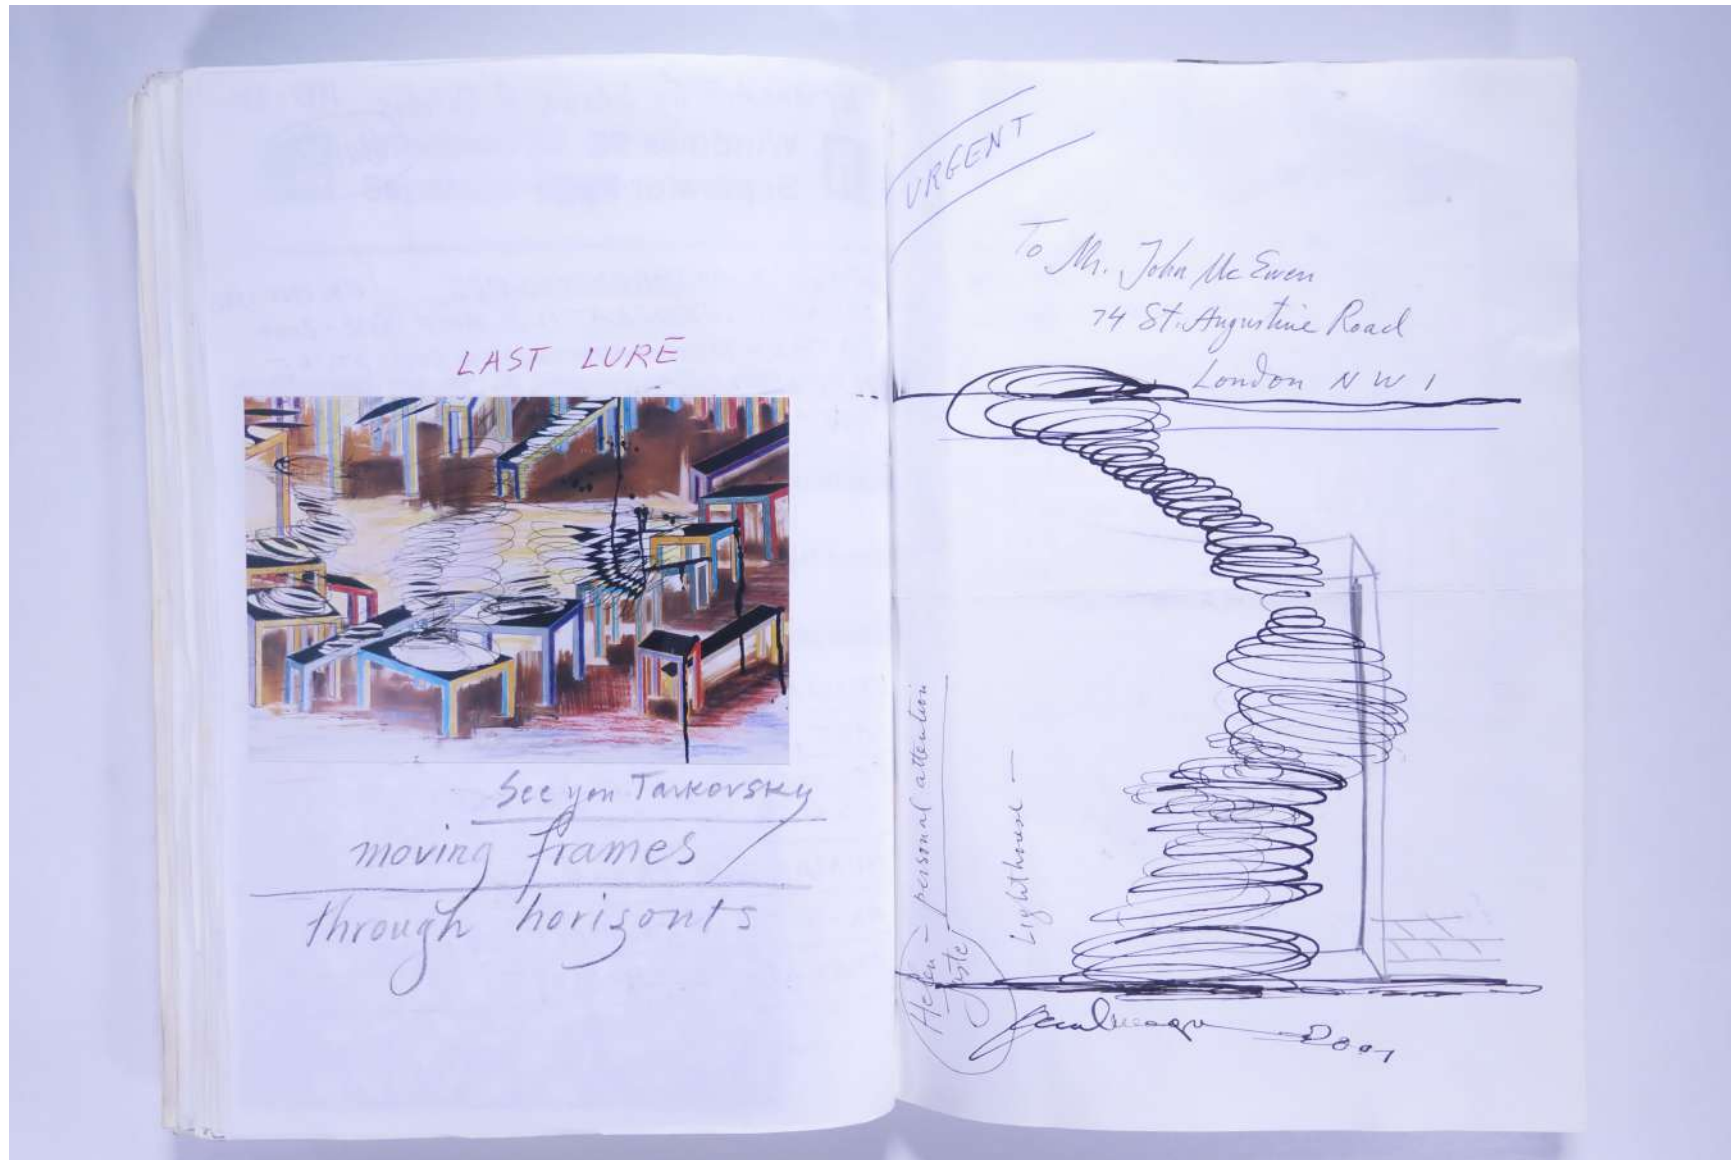 LAST LURE
See you Tarkovsky
moving frames
through horizonts
URGENT
To Mr. John Mc Ewen
74 St. Augustine Road
London N W 1
Helen – personal attention
Lighthouse —
2001